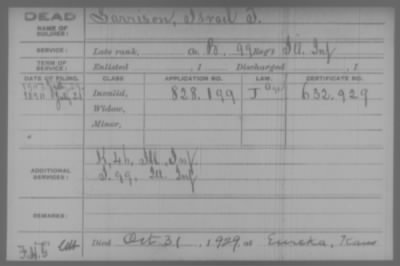 DEAD
NAME OF SOLDIER: Garrison, Israel T.
SERVICE: Late rank, Co. B, 99 Reg't Ill. Inf
TERM OF SERVICE: Enlisted , 1 Discharged , 1
DATE OF FILING. CLASS APPLICATION NO. LAW. CERTIFICATE NO.
1890 July 21 Invalid, 828.199 J 632.929
Widow,
Minor,
ADDITIONAL SERVICES: K, 46, Ill. Inf.
I. 99. Ill. Inf
REMARKS:
Died Oct 31, 1929, at Eureka, Kans